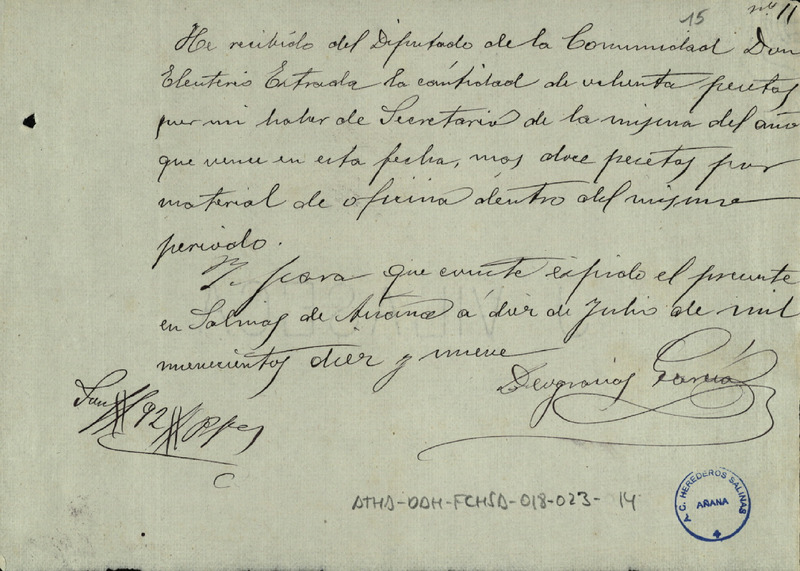 15
nº 11
He recibido del Diputado de la Comunidad Don
Eleuterio Estrada la cántidad de ochenta pesetas
por mi haber de Secretario de la misma del año
que vence en esta fecha, mas doce pesetas por
material de oficina dentro del mismo
periodo.
Y para que conste espido el presente
en Salinas de Añana á diez de Julio de mil
nuevecientos diez y nueve
Deogracias García
Son 92 Ptas
ATHA-DAH-FCHSA-018-023-14
A.C. HEREDEROS SALINAS
AÑANA